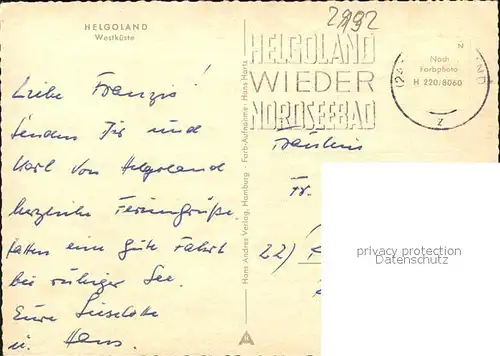 HELGOLAND
Westküste
2992
HELGOLAND
WIEDER
NORDSEEBAD
Nach
Farbphoto
H 220/8060
(24
Z
Liebe Franzis!
Senden Dir und
Karl von Helgoland
herzliche Feriengrüße.
Hatten eine gute Fahrt
bei ruhiger See.
Eure Liselotte
u. Hans.
Hans Andres Verlag, Hamburg · Farb-Aufnahme: Hans Hartz
Fräulein
Fr.
22)
privacy protection
Datenschutz